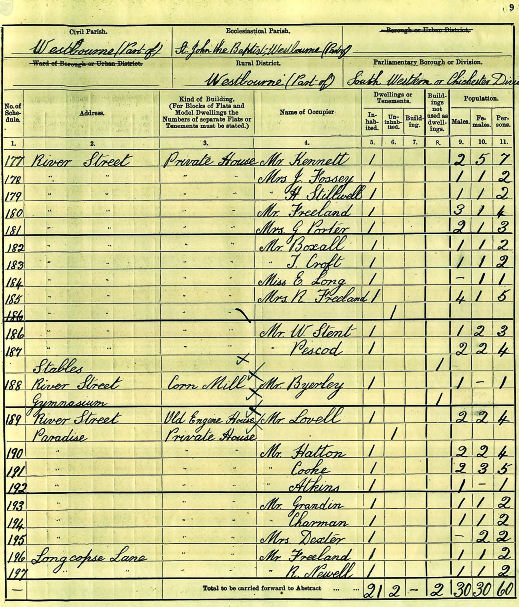 9
Civil Parish. Ecclesiastical Parish. Borough or Urban District.
Westbourne (Part of) St John the Baptist Westbourne (Part of)
Ward of Borough or Urban District. Rural District. Parliamentary Borough or Division.
Westbourne (Part of) South Western or Chichester
No. of Schedule. Address. Kind of Building. (For Blocks of Flats and Model Dwellings the Numbers of separate Flats or Tenements must be stated.) Name of Occupier Dwellings or Tenements. Inhabited. Uninhabited. Building. Buildings not used as dwellings. Population. Males. Females. Persons.
1. 2. 3. 4. 5. 6. 7. 8. 9. 10. 11.
177 River Street Private House Mr Kennett 1 2 5 7
178 " " " Mrs J. Fossey 1 1 1 2
179 " " " " H Stillwell 1 1 1 2
180 " " " Mr Freeland 1 3 1 4
181 " " " Mrs G Porter 1 2 1 3
182 " " " Mr Boxall 1 1 1 2
183 " " " " T. Croft 1 1 1 2
184 " " " Miss E Long 1 - 1 1
185 " " " Mrs R Freeland 1 4 1 5
186 " " 1
186 " " " Mr W. Stent 1 1 2 3
187 " " " " Pescod 1 2 2 4
Stables 1
188 River Street Corn Mill Mr Byerley 1 1 - 1
Gymnasium 1
189 River Street Old Engine House Mr Lovell 1 2 2 4
Paradise Private House 1
190 " " " Mr Hatton 1 2 2 4
191 " " " " Cooke 1 2 3 5
192 " " " " Atkins 1 1 - 1
193 " " " Mr Grandin 1 1 1 2
194 " " " " Charman 1 1 1 2
195 " " " Mrs Dexter 1 - 2 2
196 Longcopse Lane " " Mr Freeland 1 1 1 2
197 " " " " R. Newell 1 1 1 2
— Total to be carried forward to Abstract 21 2 - 2 30 30 60